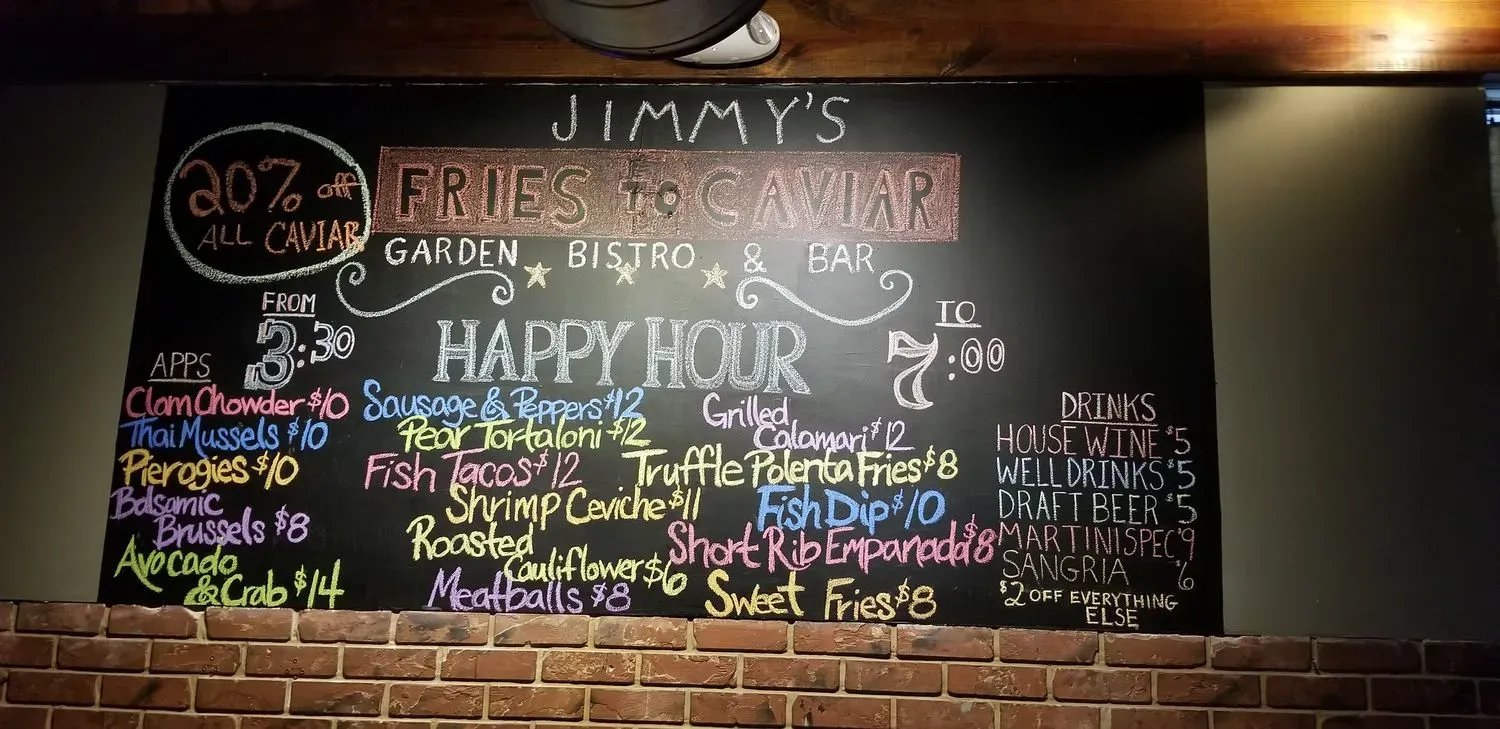 JIMMY'S
20% off
ALL CAVIAR
FRIES TO CAVIAR
GARDEN BISTRO & BAR
FROM
3:30
HAPPY HOUR
TO
7:00
APPS
Clam Chowder $10
Thai Mussels $10
Pierogies $10
Balsamic
Brussels $8
Avocado
& Crab $14
Sausage & Peppers $12
Pear Tortaloni $12
Fish Tacos $12
Shrimp Ceviche $11
Roasted
Cauliflower $6
Meatballs $8
Grilled
Calamari $12
Truffle Polenta Fries $8
Fish Dip $10
Short Rib Empanada $8
Sweet Fries $8
DRINKS
HOUSE WINE $5
WELL DRINKS $5
DRAFT BEER $5
MARTINI SPEC $9
SANGRIA $6
$2 OFF EVERYTHING
ELSE